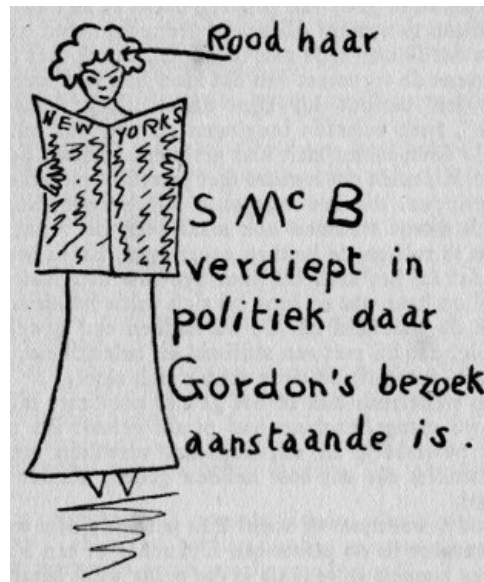 Rood haar
NEW YORKS
S Mc B
verdiept in
politiek daar
Gordon's bezoek
aanstaande is.